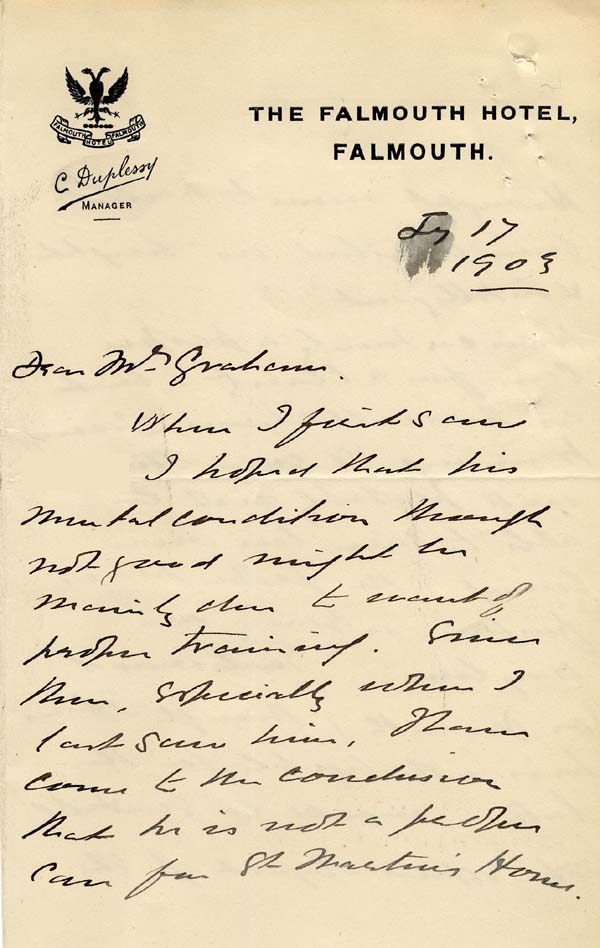 FALMOUTH HOTEL FALMOUTH
C. Duplessy
MANAGER
THE FALMOUTH HOTEL,
FALMOUTH.
Jy 17
1903
Dear Mr Graham.
When I first saw
I hoped that his
mental condition though
not good might be
mainly due to want of
proper training. Since
then, especially when I
last saw him, I have
come to the conclusion
that he is not a proper
case for St Martin's Home.